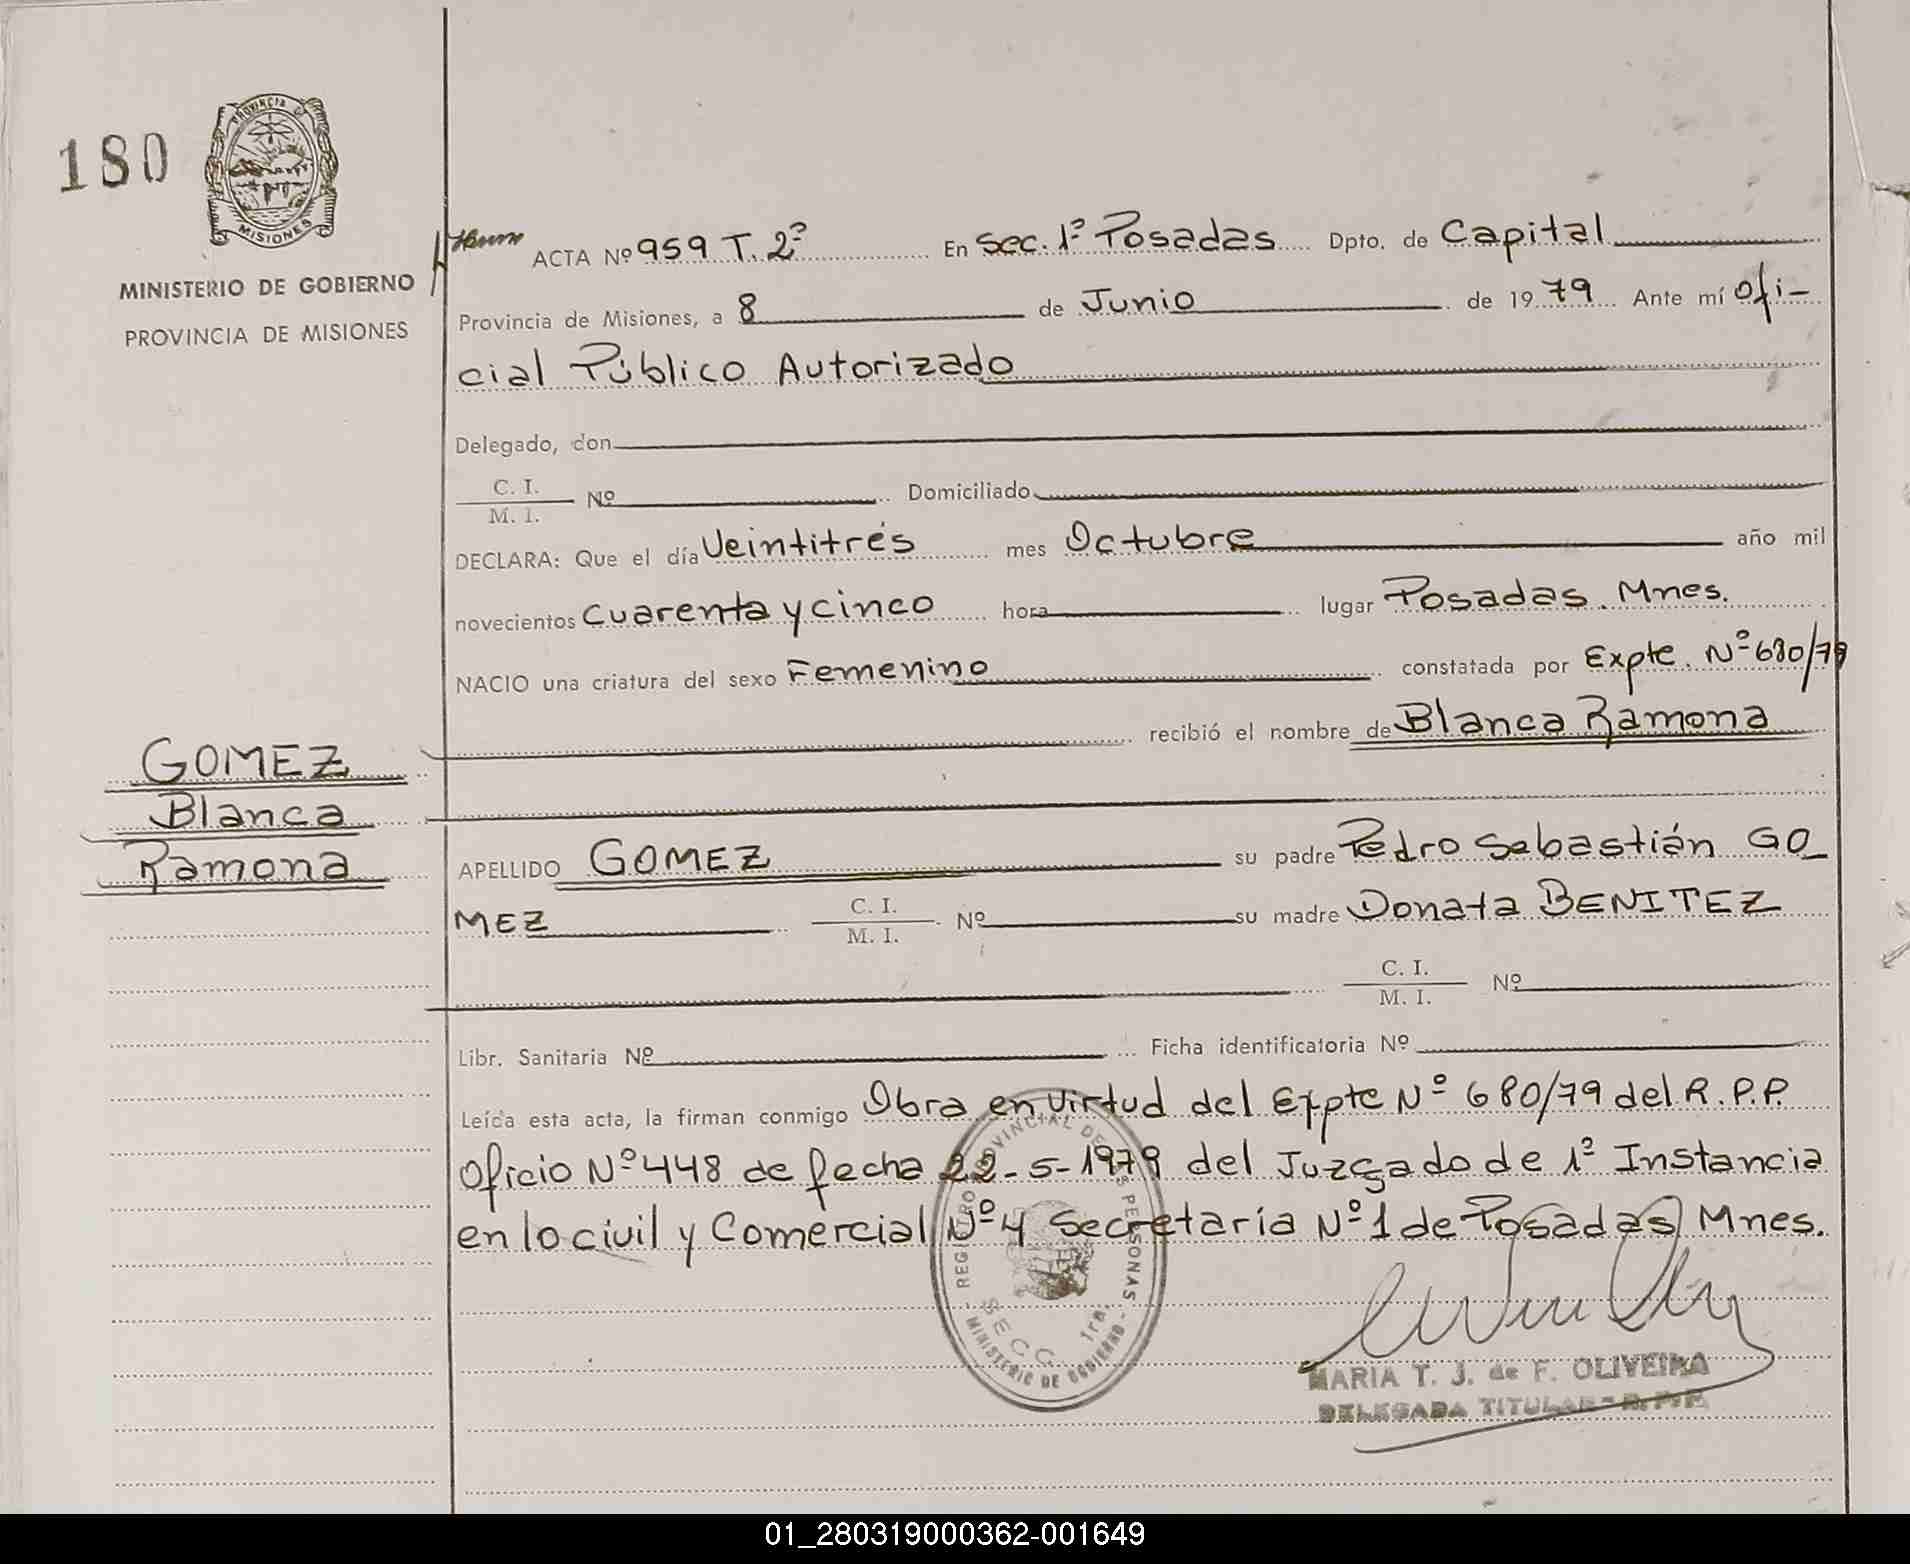 180
PROVINCIA DE
MISIONES
MINISTERIO DE GOBIERNO
PROVINCIA DE MISIONES
ACTA Nº 959 T. 2º En Sec. 1º Posadas Dpto. de Capital
Provincia de Misiones, a 8 de Junio de 1979 Ante mí Ofi-
cial Público Autorizado
Delegado, don
C. I.
M. I. Nº Domiciliado
DECLARA: Que el día Veintitrés mes Octubre año mil
novecientos Cuarenta y cinco hora lugar Posadas. Mnes.
NACIO una criatura del sexo Femenino constatada por Expte. Nº 680/79
recibió el nombre de Blanca Ramona
GOMEZ
Blanca
Ramona
APELLIDO GOMEZ su padre Pedro Sebastián GO
MEZ C. I. M. I. Nº su madre Donata BENITEZ
C. I. M. I. Nº
Libr. Sanitaria Nº Ficha identificatoria Nº
Leída esta acta, la firman conmigo Obra en virtud del Expte Nº 680/79 del R.P.P.
Oficio Nº 448 de fecha 22-5-1979 del Juzgado de 1º Instancia
en lo civil y Comercial Nº 4 Secretaría Nº 1 de Posadas Mnes.
REGISTRO PROVINCIAL DE LAS PERSONAS
SECC. 1ra.
MINISTERIO DE GOBIERNO
MARIA T. J. de F. OLIVEIRA
DELEGADA TITULAR - R.P.P.
01_280319000362-001649